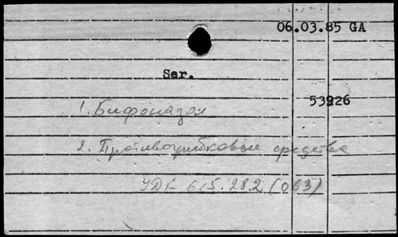 06.03.85 GA
Ser.
53926
1. Бифоназол
2. Противогрибковые средства
УДК 615.282 (063)